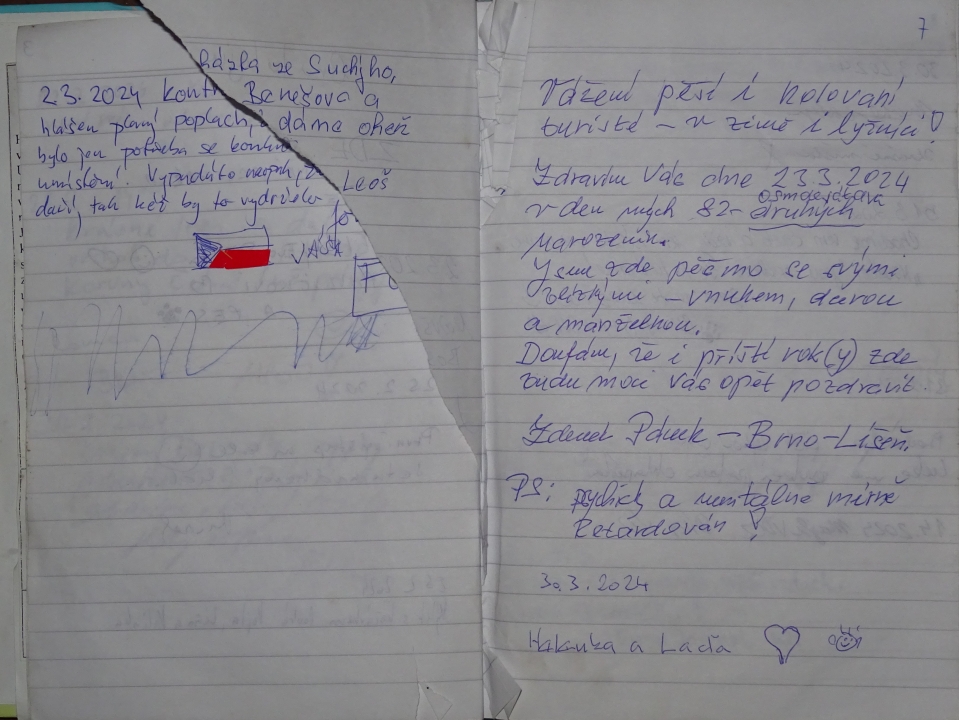 házka ze Suchýho,
23.2024 kont Benešova a
hlášen planý poplach, dáma oheň
bylo jen potřeba se
umístění. Vypadá to
Leoš
dací, tak kéž by to vydrželo
JÁŠA
7
Vážení pěší i kolovaní
turisté – v zimě i lyžníci!
Zdravím Vás dne 23.3.2024
osmdesátáva
v den mých 82- druhých
narozenin.
Jsem zde pěšmo se svými
blízkými – vnukem, dcerou
a manželkou.
Doufám, že i příští rok(y) zde
budu moci Vás opět pozdravit.
Zdeněk – Brno-Líšeň.
PS: psychicky a mentálně mírně
Retardován!
30.3.2024
a Laďa